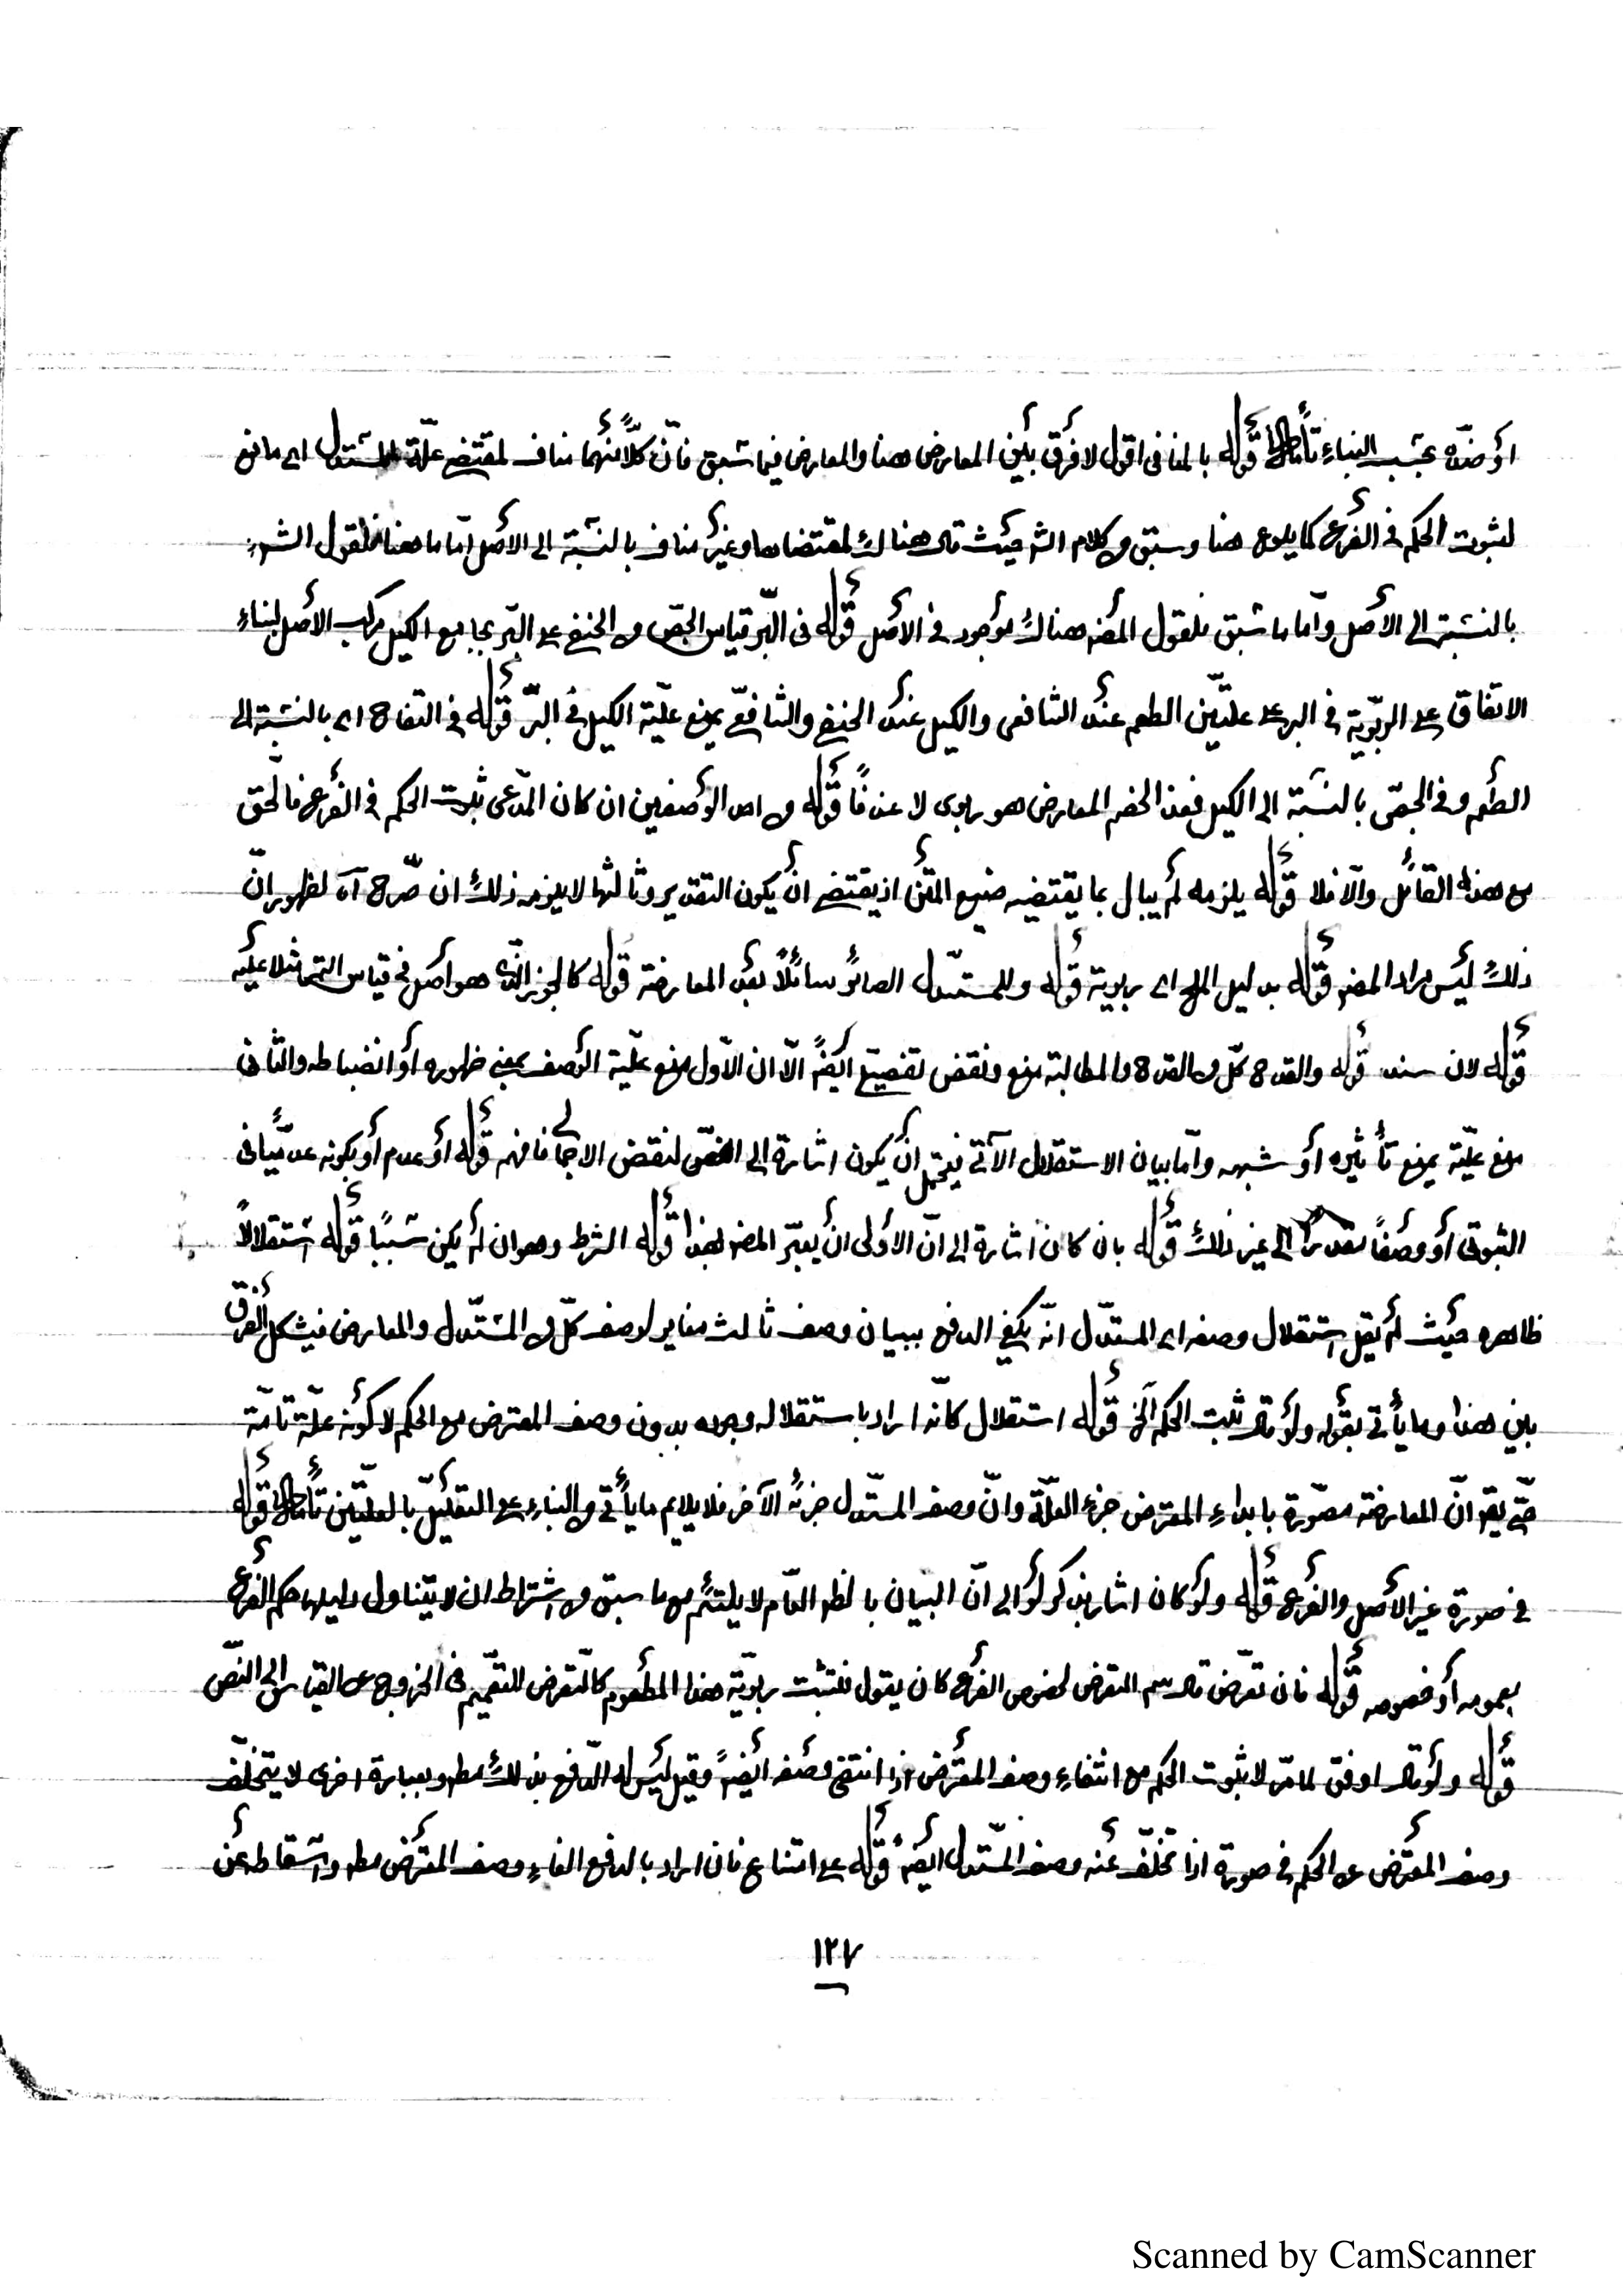 أو ضدّه بحسب البناء تأمل قوله بالمنافى اقول لا فرق بين المعارض هنا والمعارض فيما سبق فانّ كلّاً منهما مناف لمقتضى علّة المستدل اى مانع
لثبوت الحكم فى الفرع كما يلوح هنا وسبق فى كلام الش حيث قال هناك لمقتضاها وغير مناف بالنسبة الى الأصل امّا ما هنا فلقول الش
بالنسبة الى الأصل وامّا ما سبق فلقول المص هناك موجود فى الأصل قوله فى البّر قياس الجصّ من الحنفى على البّر بجامع الكيل مركب الأصل لبناء
الاتفاق على الربويّة فى البر على علتين الطعم عند الشافعى والكيل عند الحنفى والشافعى يمنع علّية الكيل فى البرّ قوله فى التفاح اى بالنسبة الى
الطعم وفى الجصّ بالنسبة الى الكيل فعند الخصم المعارض هو ربوى لا عندنا قوله من الوصفين ان كان المدّعى ثبوت الحكم فى الفرع فالحق
مع هذا القائل والّا فلا قوله يلزمه لم يبال بما يقتضيه صنيع المتن اذ يقتضى أن يكون التقدير وثالثها لا يلزمه ذلك ان صرّح آه لظهور انّ
ذلك ليس مراد المص قوله بدليل اى ربوية قوله وللمستدل الصائر سائلاً بعد المعارضة قوله كالجوز الذى هو اصل فى قياس مثلا عليه
قوله لان سند قوله والقدح كلّ من القدح والمطالبة منع ونقض تفصيلى ايضً الّا ان الاوّل منع علّية الوصف بمنع ظهوره أو انضباطه والثانى
منع علّية بمنع تأثيره أو شبهه وامّا بيان الاستقلال الآتى فيحتمل أن يكون اشارة الى لنقض الاجمالى فافهم قوله أو عدم أو بكونه عدميّا فى
الثبوتى أو وصفاً مقدراً الى غير ذلك قوله بان كان اشارة الى انّ الاولى أن يعبّر المص بهذا قوله الشرط وهو ان لم يكن سببًا قوله استقلالاً
ظاهره حيث لم يقل استقلال وصفه اى المستدل انّه يكفى الدفع ببيان وصف ثالث مغاير لوصف كلّ من المستدل والمعارض فيشكل الفرق
بين هذا وما يأتى بقوله ولو قال ثبت الحكم الخ قوله استقلال كانّه اراد باستقلاله وجوده بدون وصف المعترض مع الحكم لا كونه علّة تامّة
حتى يقو انّ المعارضة مصوّرة بابداء المعترض جزء العلّة وانّ وصف المستدل جزئه الآخر فلا يلايم ما يأتى من البناء على التعليل بالعلتين تأمل قوله
فى صورة غير الأصل والفرع قوله ولو كان اشار بذكر لو الى انّ البيان بالظه العام لا يلتئم مع ما سبق من اشتراط ان لا يتناول دليلها حكم الفرع
بعمومه أو خصوصه قوله فان تعرّض قال سم التعرض لخصوص الفرع كان يقول فثبتت ربويّة هذا المطعوم كالتعرض للتعميم فى الخروج عن القياس الى النصّ
قوله ولو قال اوفق لما مرّ لا بثبوت الحكم مع انتفاء وصف المعترض اذا انتفى وصفه ايضً وقيل ليس له الدفع بذلك مط وبعبارة اخرى لا يتخلف
وصف المعترض عن الحكم فى صورة اذا تخلّف عنه وصف المستدل ايضً قوله على امتناع فان اراد بالدفع الغاء وصف المعترض مط واسقاطه عن
١٢٧
Scanned by CamScanner